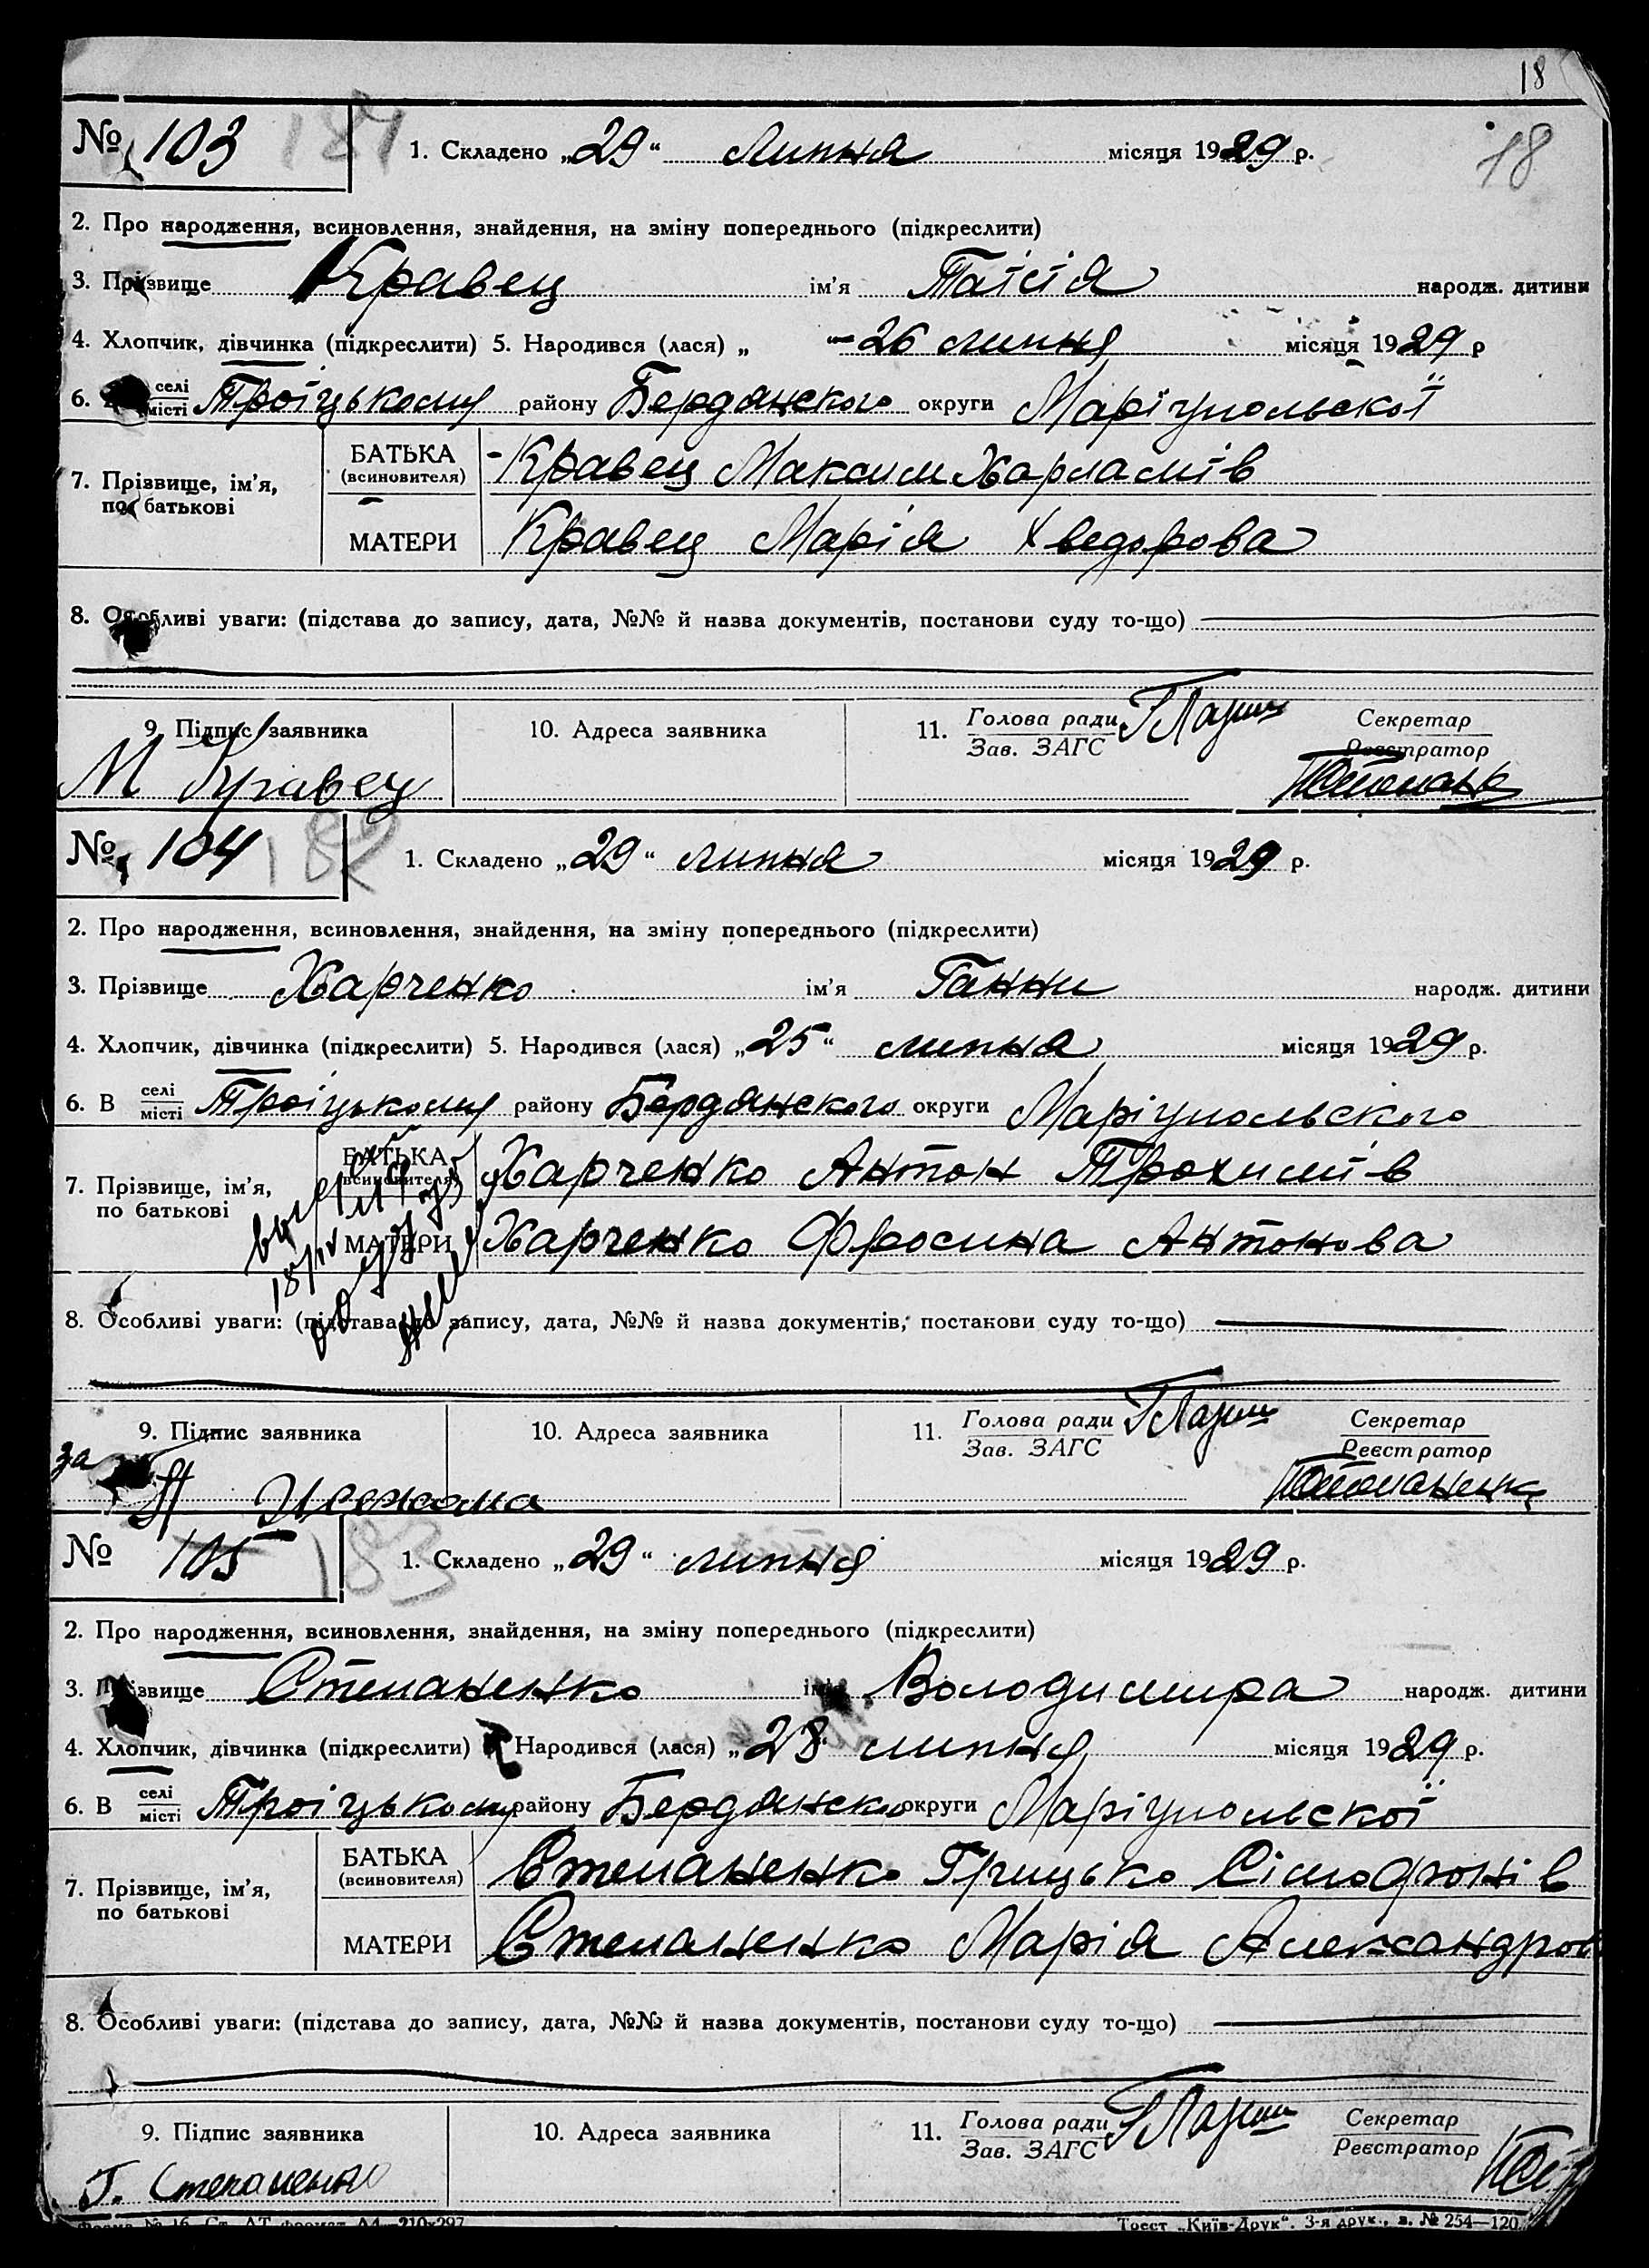 18
№ 103 181 1. Складено „29“ липня місяця 1929 р. 18
2. Про народження, всиновлення, знайдення, на зміну попереднього (підкреслити)
3. Прізвище Кравец ім'я Таісія народж. дитини
4. Хлопчик, дівчинка (підкреслити) 5. Народився (лася) „ 26 липня місяця 1929 р
6. селі місті Троіцькому району Бердянского округи Маріупольскої
7. Прізвище, ім'я, по батькові БАТЬКА (всиновителя) Кравец Максим Харламів
МАТЕРИ Кравец Марія Хведорова
8. Особливі уваги: (підстава до запису, дата, №№ й назва документів, постанови суду то-що)
9. Підпис заявника 10. Адреса заявника 11. Голова ради Зав. ЗАГС Секретар Реєстратор
М Кравец
№ 104 182 1. Складено „29“ липня місяця 1929 р.
2. Про народження, всиновлення, знайдення, на зміну попереднього (підкреслити)
3. Прізвище Харченко ім'я Ганни народж. дитини
4. Хлопчик, дівчинка (підкреслити) 5. Народився (лася) „25“ липня місяця 1929 р.
6. В селі місті Троіцькому району Бердянского округи Маріупольского
7. Прізвище, ім'я, по батькові БАТЬКА (всиновителя) Харченко Антон Трохимів
МАТЕРИ Харченко Фросина Антонова
8. Особливі уваги: (підстава до запису, дата, №№ й назва документів, постанови суду то-що)
9. Підпис заявника 10. Адреса заявника 11. Голова ради Зав. ЗАГС Секретар Реєстратор
за
№ 105 183 1. Складено „29“ липня місяця 1929 р.
2. Про народження, всиновлення, знайдення, на зміну попереднього (підкреслити)
3. Прізвище Степаненко ім'я Володимира народж. дитини
4. Хлопчик, дівчинка (підкреслити) Народився (лася) „28“ липня місяця 1929 р.
6. В селі місті Троіцькому району Бердянско округи Маріупольскої
7. Прізвище, ім'я, по батькові БАТЬКА (всиновителя) Степаненко Грицько Сімофонів
МАТЕРИ Степаненко Марія Александров
8. Особливі уваги: (підстава до запису, дата, №№ й назва документів, постанови суду то-що)
9. Підпис заявника 10. Адреса заявника 11. Голова ради Зав. ЗАГС Секретар Реєстратор
Г. Степаненко
Форма № 16. Ст. АТ формат А4—210×297 Трест „Київ-Друк“. 3-я друк., в. № 254—120